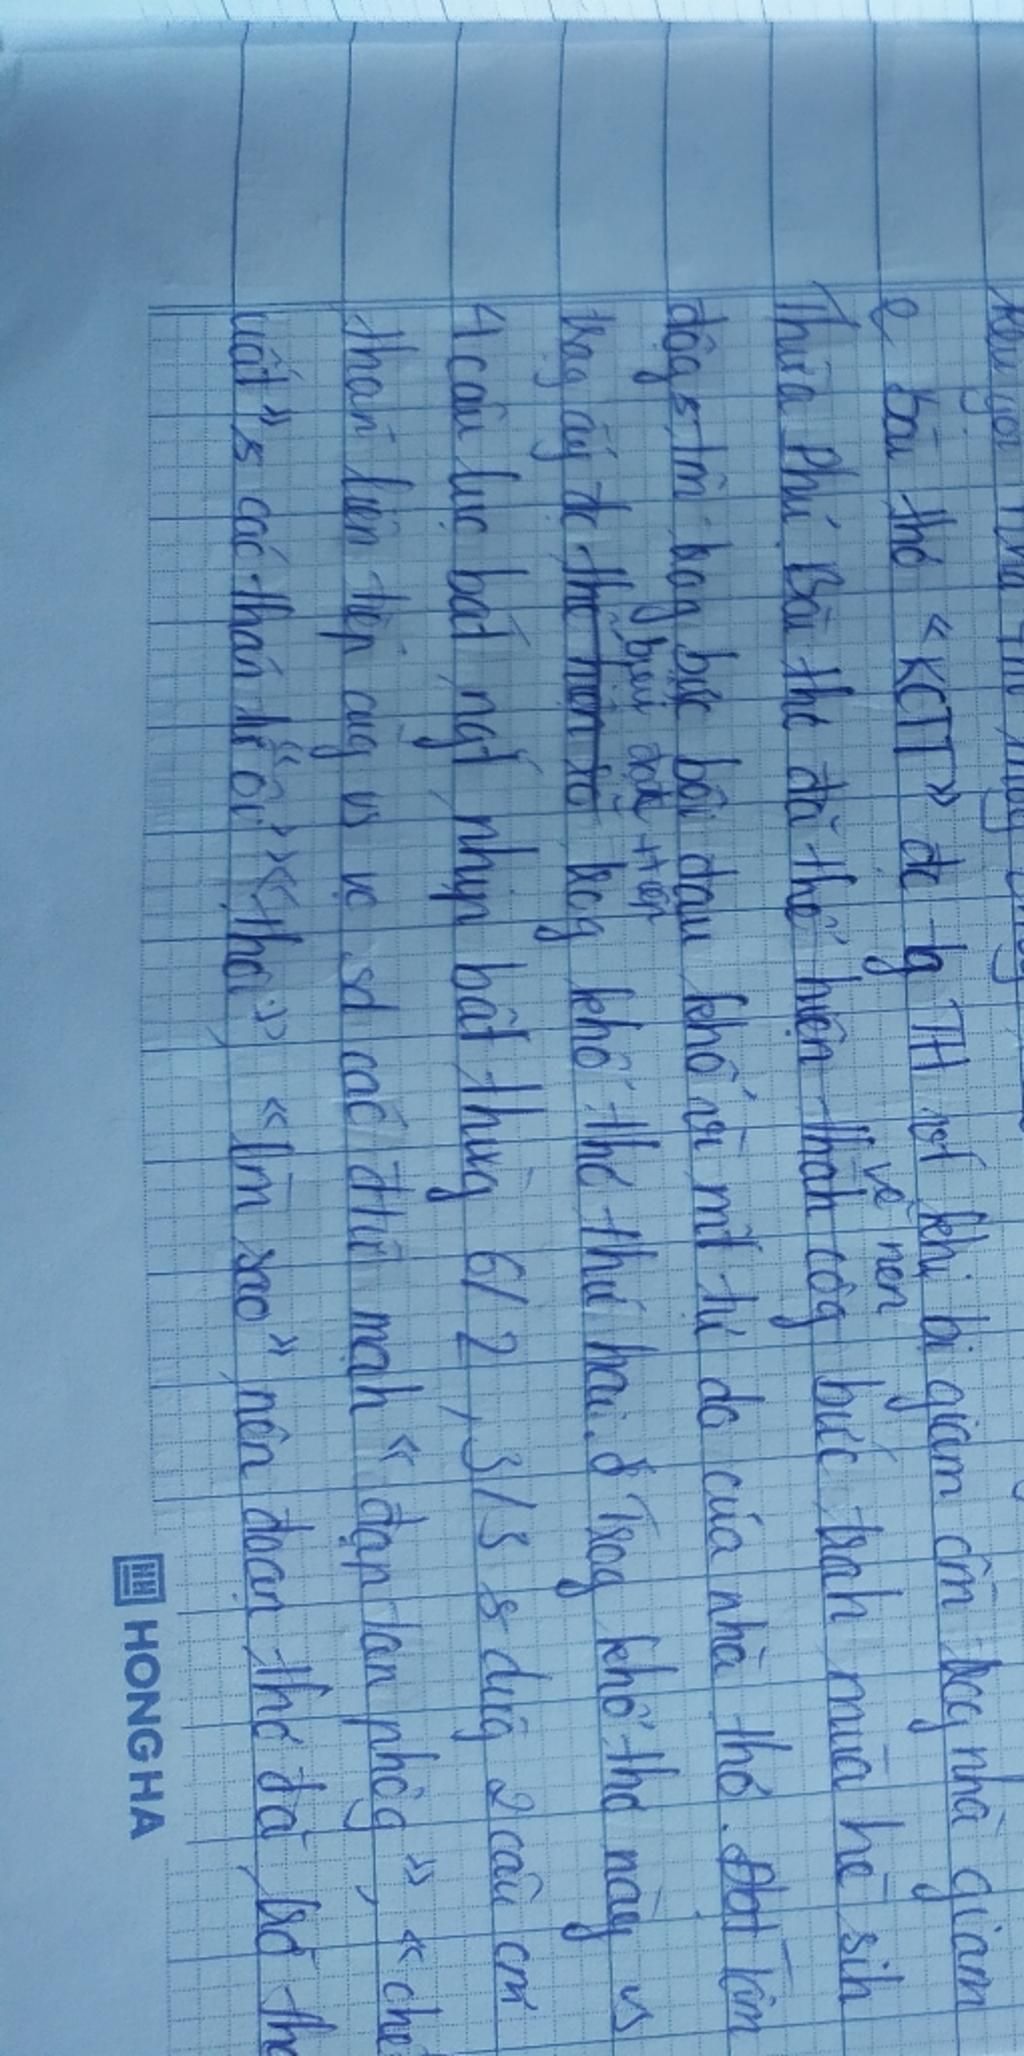 2, Bài thơ «KCTT» đc tg TH viết khi bị giam cầm trog nhà giam
Thừa Phủ. Bài thơ đã thể hiện thàh côg bức trah mùa hè sih
vẽ nên
độg & tâm trạg bực bội đau khổ vì mất tự do của nhà thơ. Tâm
biểu đạt tiếp
trạg ấy đc trog khổ thơ thứ hai. Trog khổ thơ này vs
4 câu lục bát, ngắt nhịp bất thườg 6/2, 3/3 & dùg 2 câu cảm
thán liên tiếp cùg vs vc sd các đtừ mạh «đạp tan phòg», «chết
uất» & các thán từ «ôi» «thôi» «làm sao» nên đoạn thơ đã trở
HONG HA